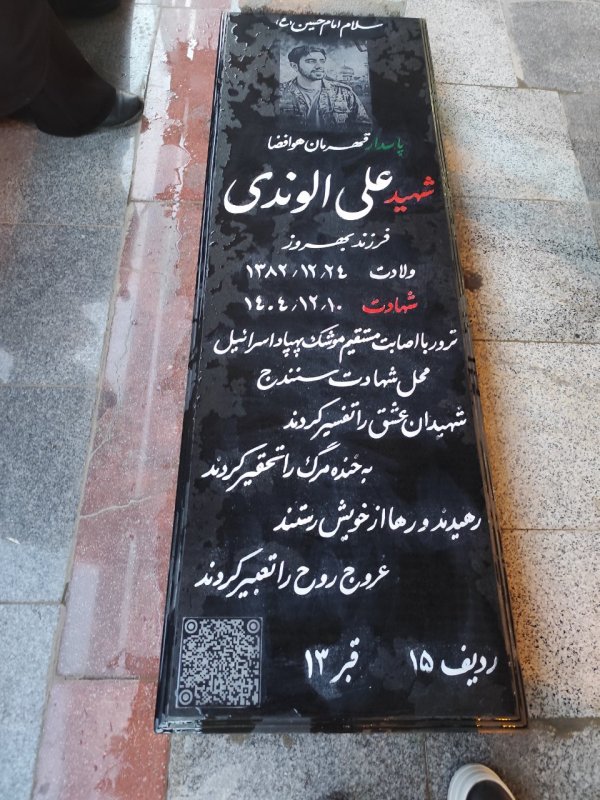 سلام امام حسین (ع)
پاسدار قهرمان هوافضا
شهید علی الوندی
فرزند بهروز
ولادت ۱۳۸۲/۱۲/۲۴
شهادت ۱۴۰۴/۱۲/۱۰
ترور با اصابت مستقیم موشک پهپاد اسرائیل
محل شهادت سنندج
شهیدان عشق را تفسیر کردند
به خنده مرگ را تحقیر کردند
رهیدند و رها از خویش رستند
عروج روح را تعبیر کردند
ردیف ۱۵ قبر ۱۳